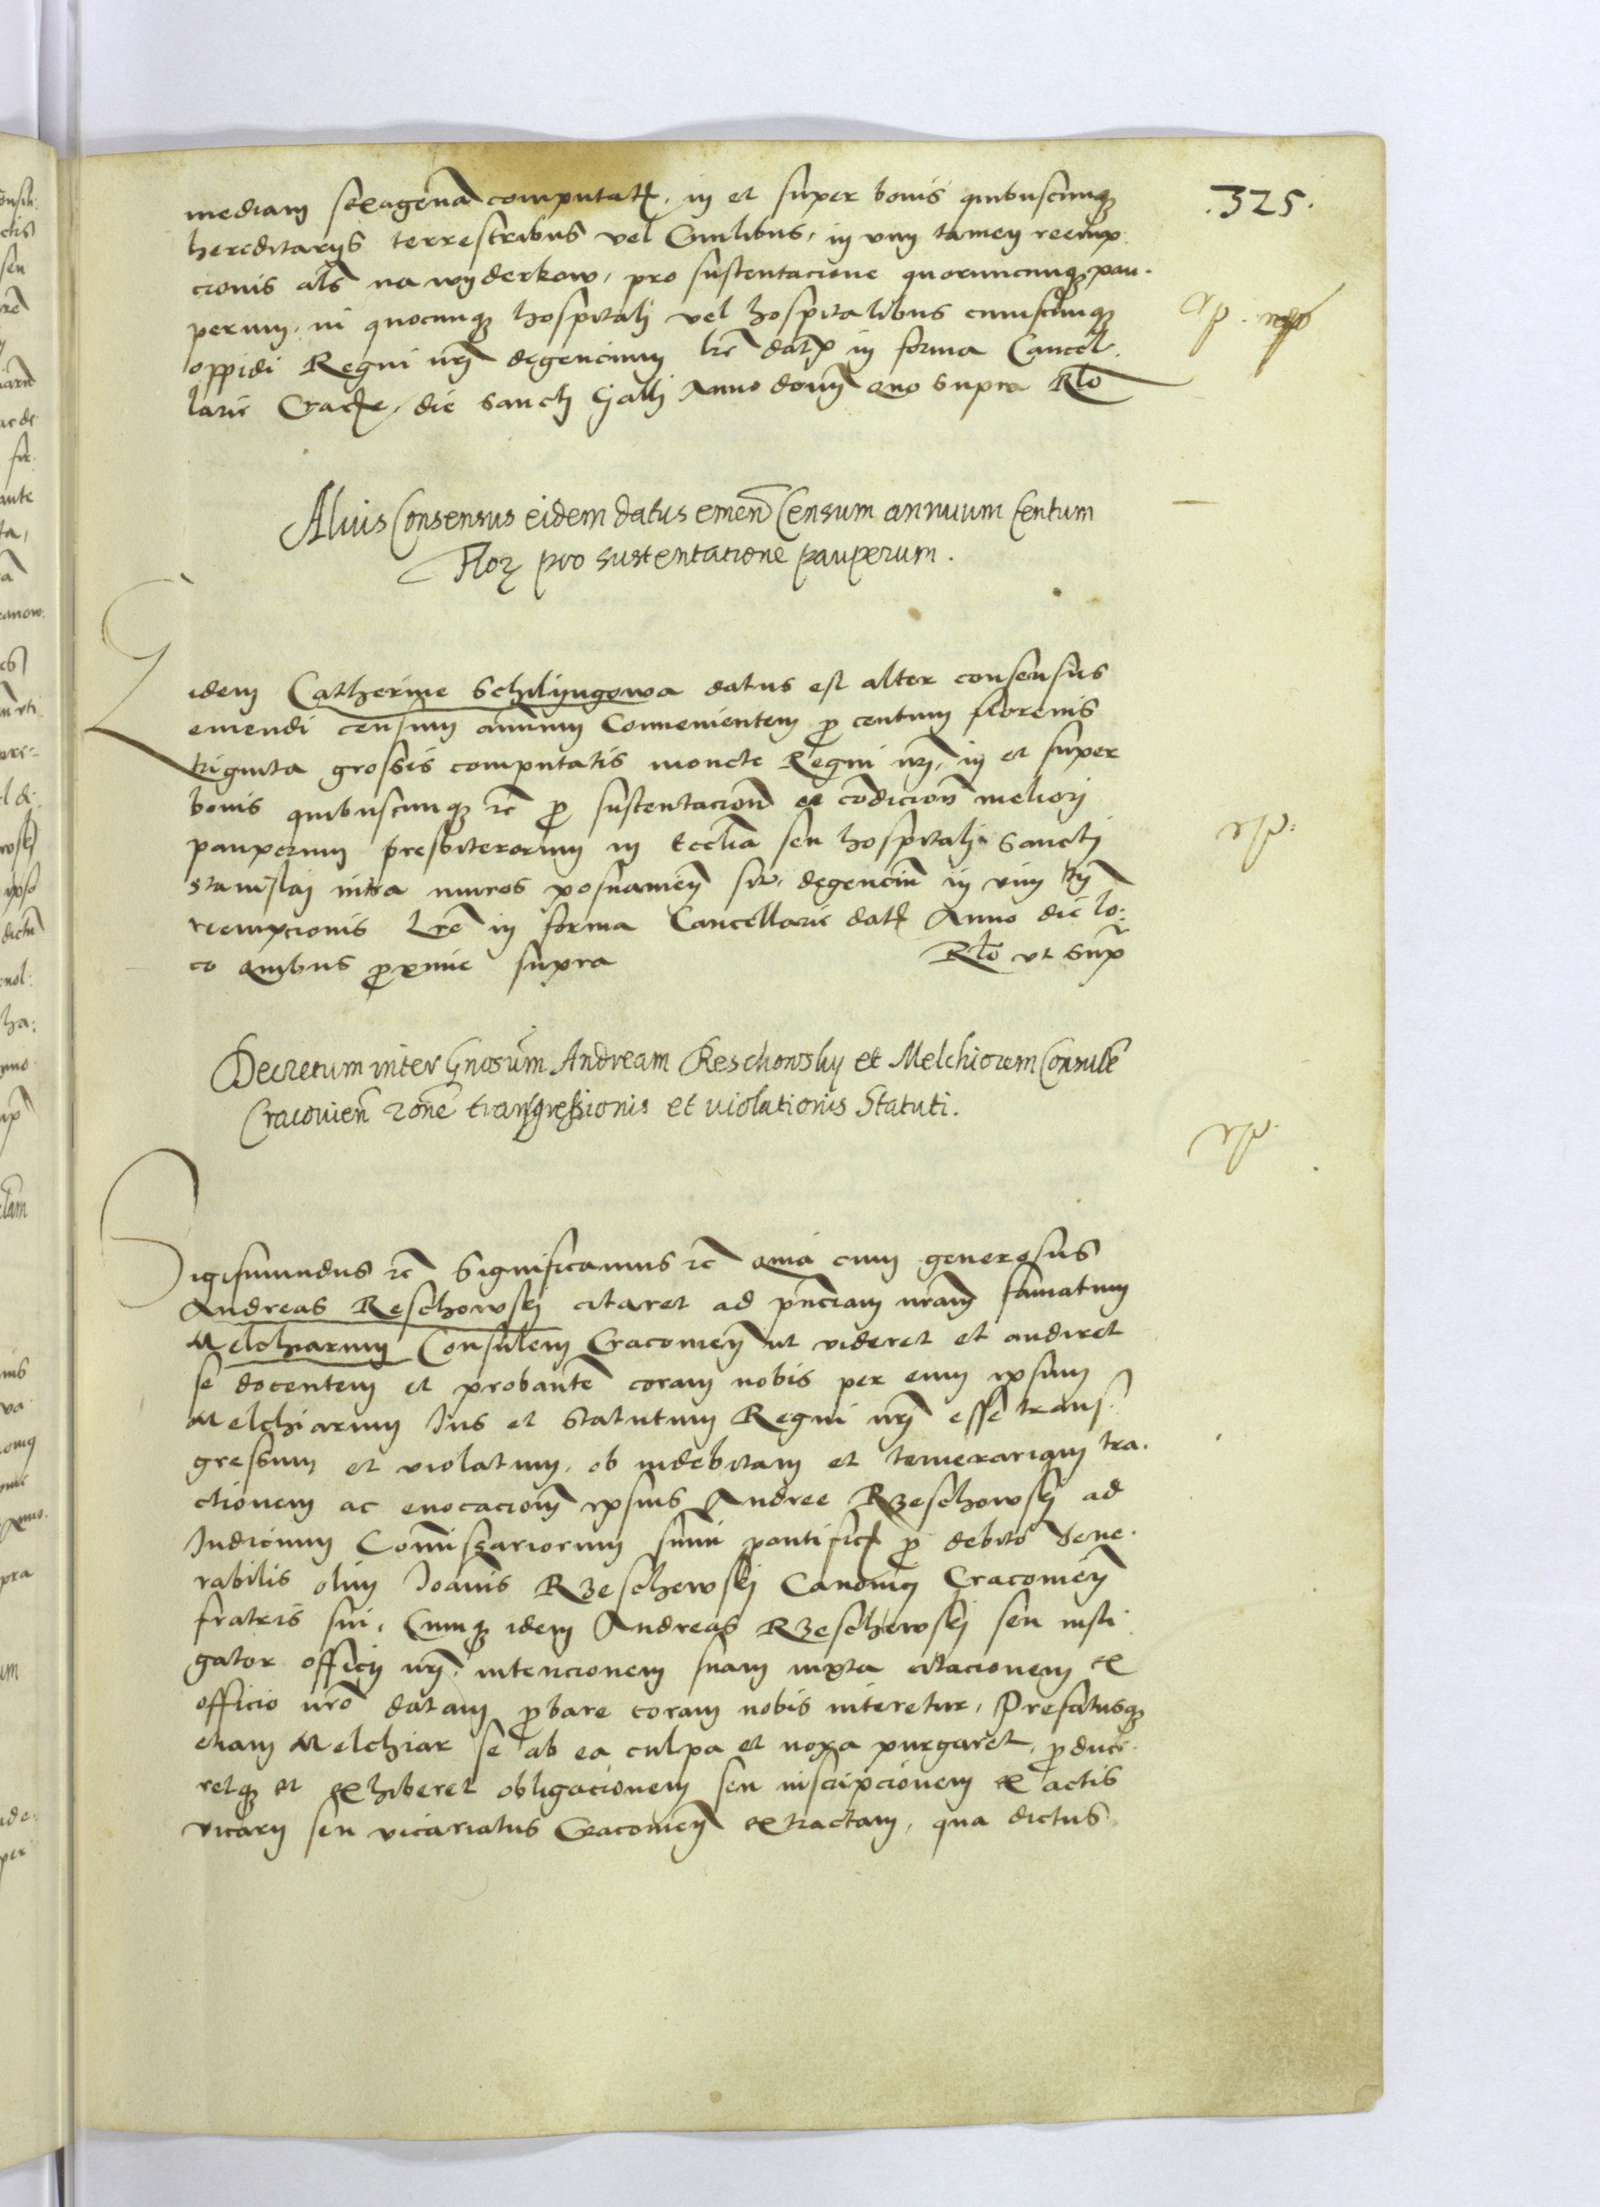 .325.
mediam sexagenā computatꝭ, in et super bonis quibuscunqꝫ
hereditariis terrestribus vel Civilibus, in vim tamen reemp
cionis als̄ na wyderkow, pro sustentacione quoruncunqꝫ pau-
perum, in quocunqꝫ hospitali vel hospitalibus cuiuscunqꝫ
oppidi Regni nrī degencium lrē datꝭ in forma Cancel
larie Cracꝭ, die sancti Galli Anno domī quo supra Rlō
Alius Consensus eidem datus emēn Censum annuum Centum
Florꝫ pro sustentatione pauperum.
Eidem Catherine Schilyngowa datus est alter consensus
emendi censum annuum Convenientem ꝓ centum florenis
triginta grossis computatis monete Regni nrī, in et super
bonis quibuscunqꝫ ⁊c̄ ꝓ sustentacionē et cōdicionē meliori
pauperum presbiterorum in Ecclīa seu hospitali Sancti
Stanislai intra muros posnanieñ siᵗ, degenciū in vim tm̄
reempcionis Lrē in forma Cancellarie datꝭ Anno die lo:
co quibus ꝓxime supra Rlō ut sup̄
Decretum inter Gnosūm Andream Reschowsky et Melchiorem Consulē
Cracovieñ rōne transgressionis et violationis Statuti.
Sigismundus ⁊c̄ Significamus ⁊c̄ quia cum generosus
Andreas Reschowskj citaret ad pn̄ciam nrām famatum
Melchiarum Consulem Cracovieñ ut videret et audiret
se docentem et probantē coram nobis per eum ipsum
Melchiarum Jus et Statutum Regni nrī esse trans
gressum et violatum, ob indebitam et temerariam tra-
ctionem ac evocacionē ipsius Andree Rzeschowskj ad
Judicium Com̄issariorum sum̄i pontificꝭ ꝓ debito Vene-
rabilis olim Joannis Rzeschowskj Canonicj Cracovieñ
fratris sui, Cumqꝫ idem Andreas Rzeschowskj seu insti
gator officij nrī, intencionem suam iuxta citacionem ex
officio nrō datam ꝓbare coram nobis niteretur, Prefatusqꝫ
etiam Melchiar se ab ea culpa et noxa purgaret, ꝓduce-
retqꝫ et exhiberet obligacionem seu inscripcionem ex actis
vicarij seu vicariatus Cracovieñ extractam, qua dictus